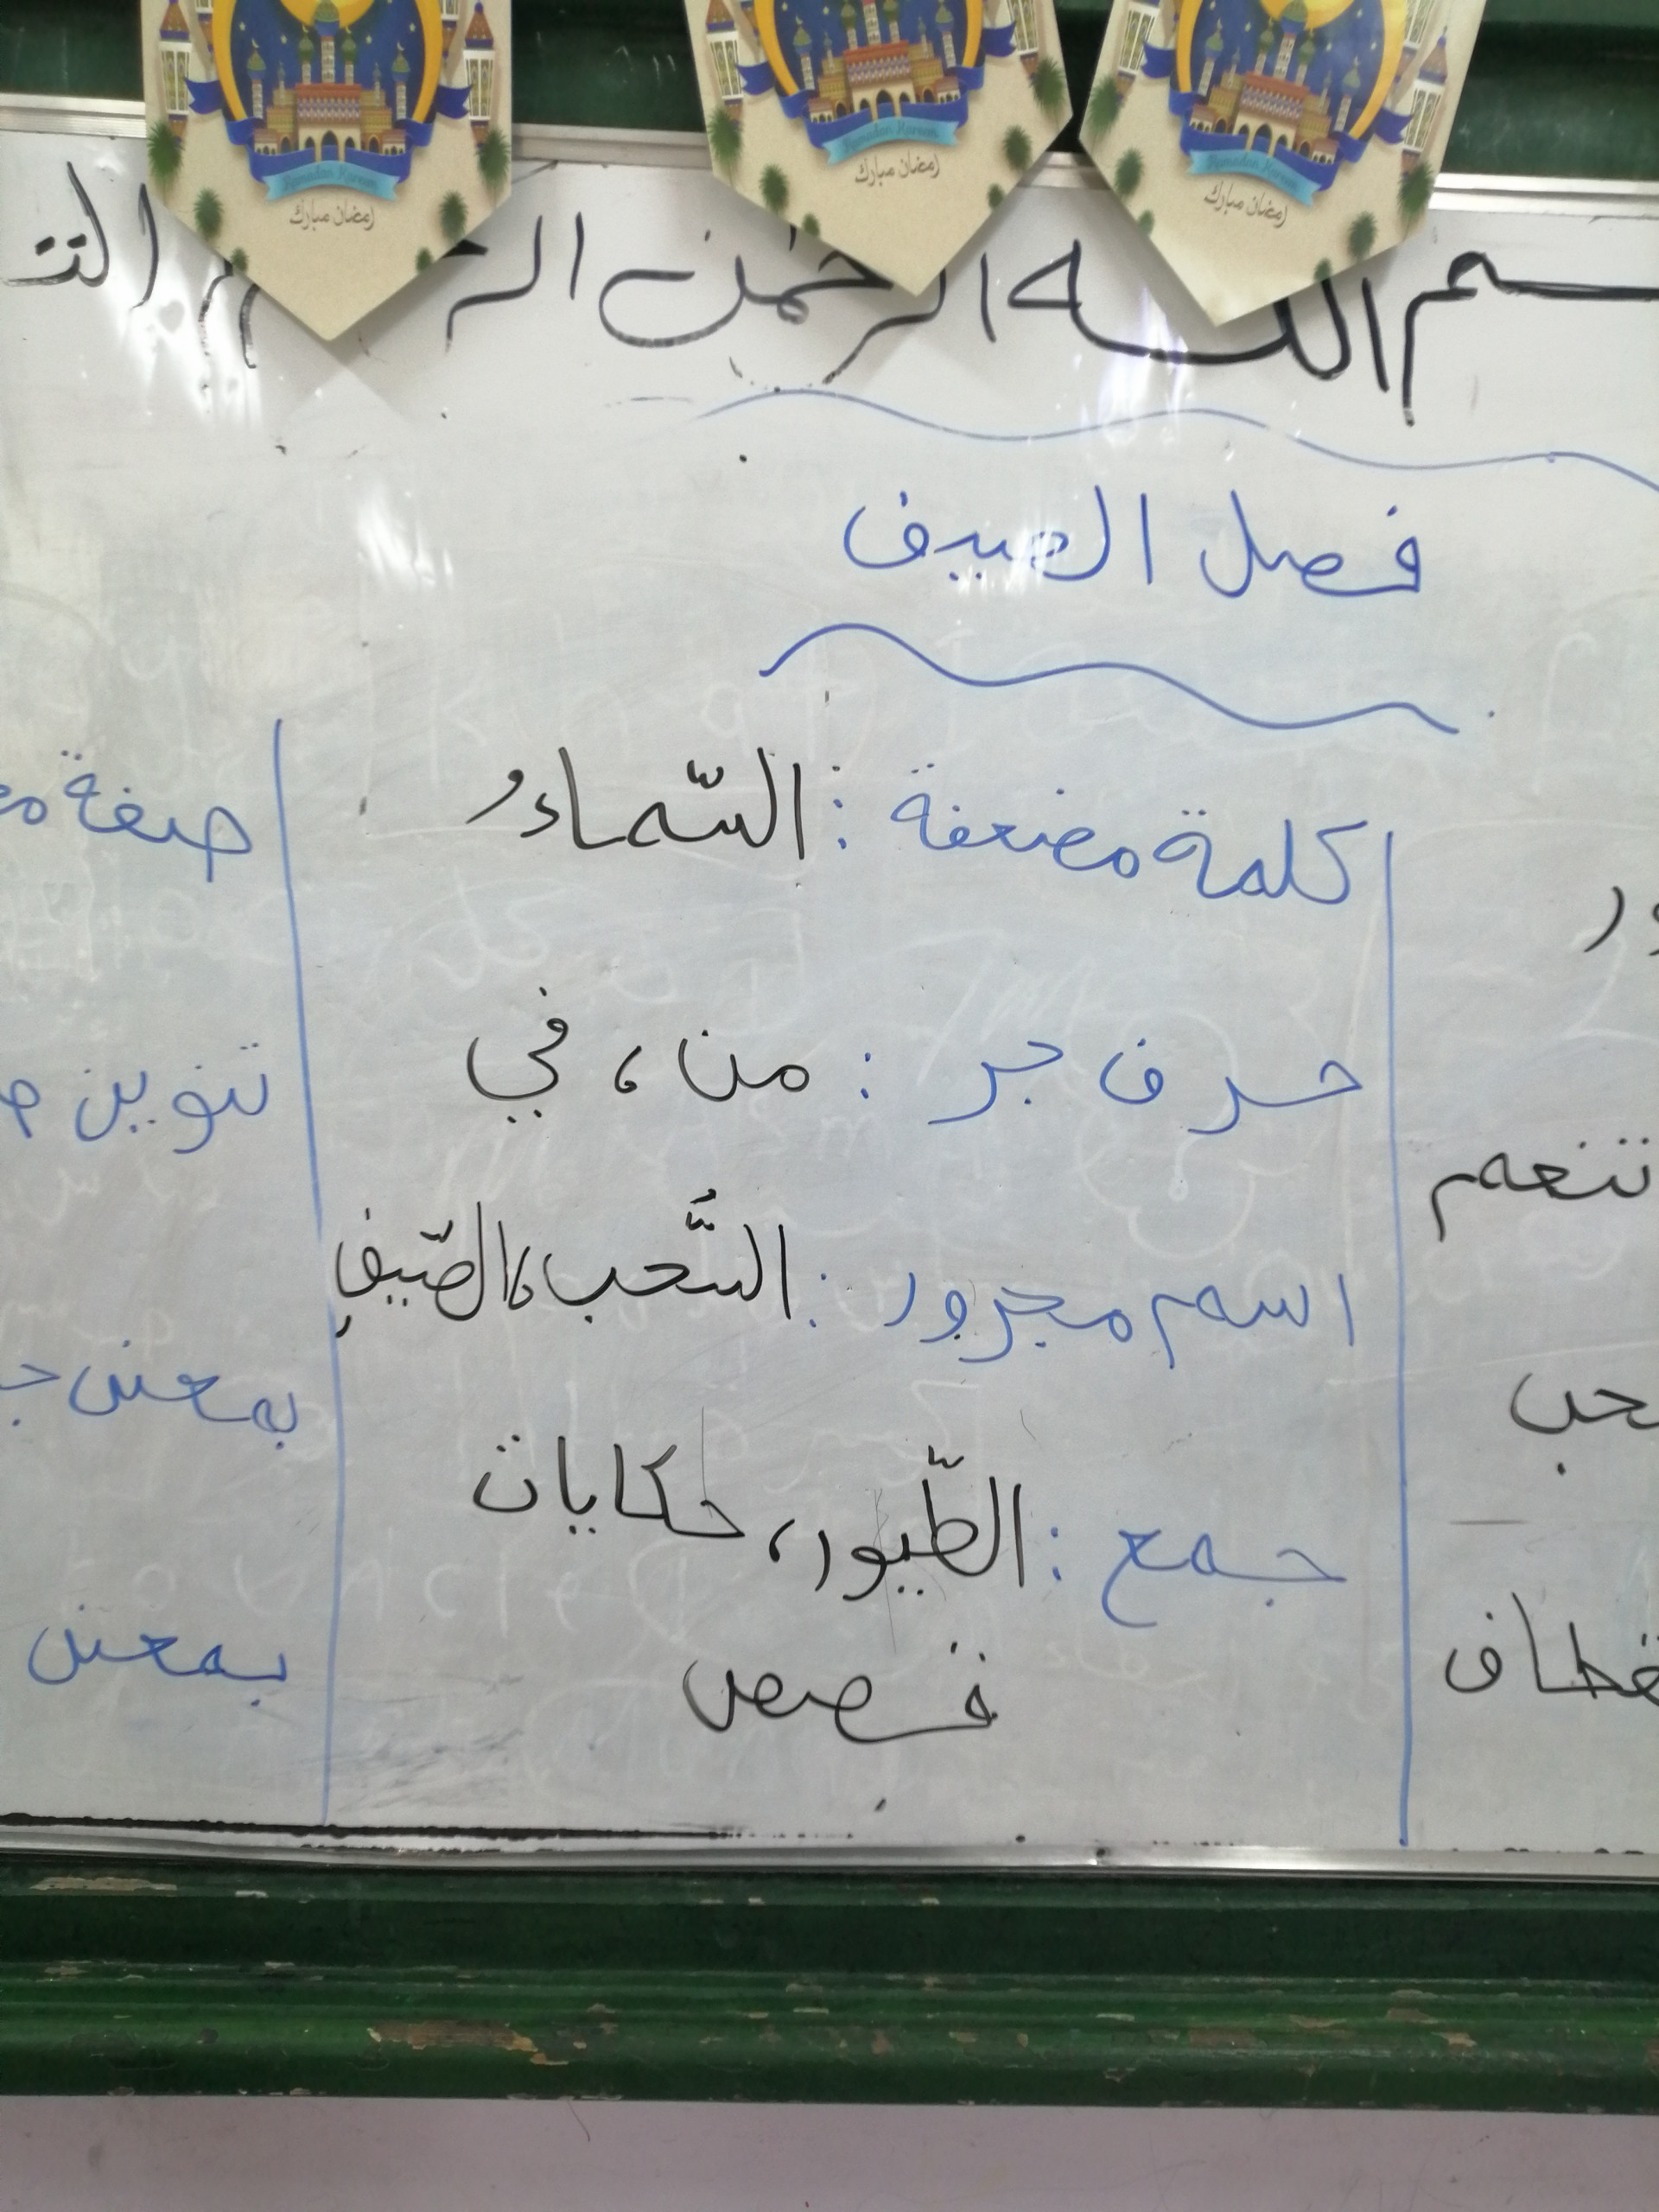 Ramadan Kareem
رمضان مبارك
Ramadan Kareem
رمضان مبارك
Ramadan Kareem
رمضان مبارك
سم اللـه الرحمٰن الر
فصل الصيف
كلمة مضعفة : السّماءُ
حرف جر : من ، في
اسم مجرور : السُّحب ، الصّيفِ
جمع : الطّيور ، حكايات
قصص
تنغم
حب
قطاف
صفة
تنوين
بمعنى
بمعنى